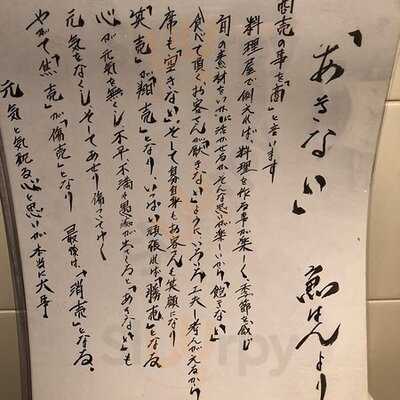 「あきない」 魚はんより
商売の事を「商」と言います
料理屋で例えれば、料理を作る事が楽しく、季節を感じ
旬の素材をいかに活かせるかそんな思いが楽しいから「飽きない」
食べて頂くお客さんが「厭きない」ように、いろいろ工夫し考えがえるから
席も「空きない」、そして自分自身もお客さんも笑顔になり
「笑売」が「翔売」となり、いっぱい頑張れば「勝売」となる
心が元気を無くし不平、不満、愚痴が出てくると「あきない」も
元気をなくし、そしてあせり傷ついてゆく
やがて「焦売」が「傷売」となり 最後は、「消売」となる。
元気と気配る心と思いが本当に大事